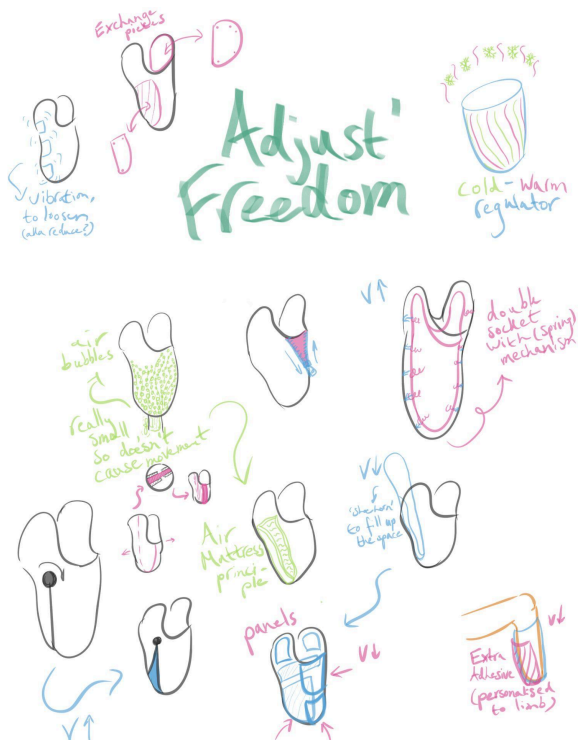 Exchange
pieces
Adjust'
Freedom
vibration,
to loosen
(aka reduce?)
cold-warm
regulator
V↑
double
socket
with (spring)
mechanism
air
bubbles
really
small
so doesn't
cause movement
V↓
to fill up
the space
Air
Mattress
princi-
ple
panels
V↓
V↓
Extra
Adhesive
(personalised
to limb)
V↑